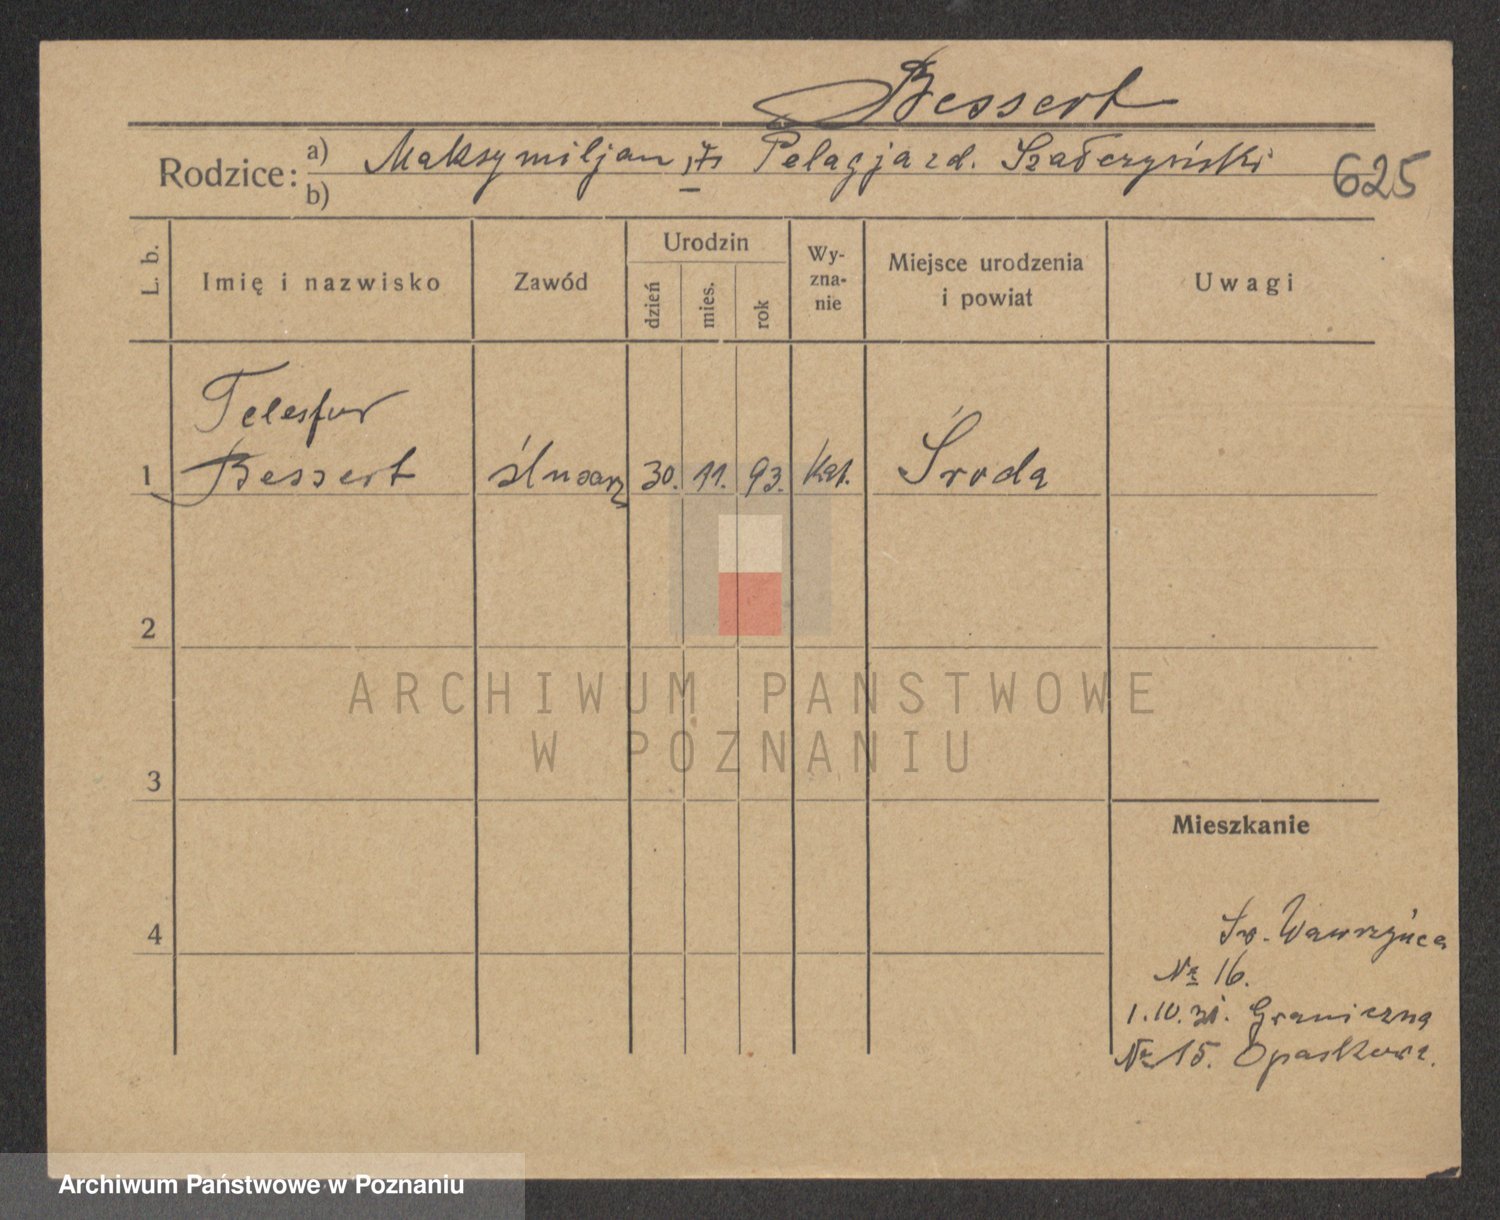 Bessert
Rodzice: a) Maksymiljan Pelagja zd. Szałczyński
b)
625
L. b.
Imię i nazwisko
Zawód
Urodzin
dzień
mies.
rok
Wy-
zna-
nie
Miejsce urodzenia
i powiat
Uwagi
Telesfor
1 Bessert ślusarz 30. 11. 93. Kat. Środa
2
ARCHIWUM PAŃSTWOWE
W POZNANIU
3
Mieszkanie
4
Św. Wawrzyńca
№ 16.
1.10.31. Graniczna
№ 15.
Archiwum Państwowe w Poznaniu